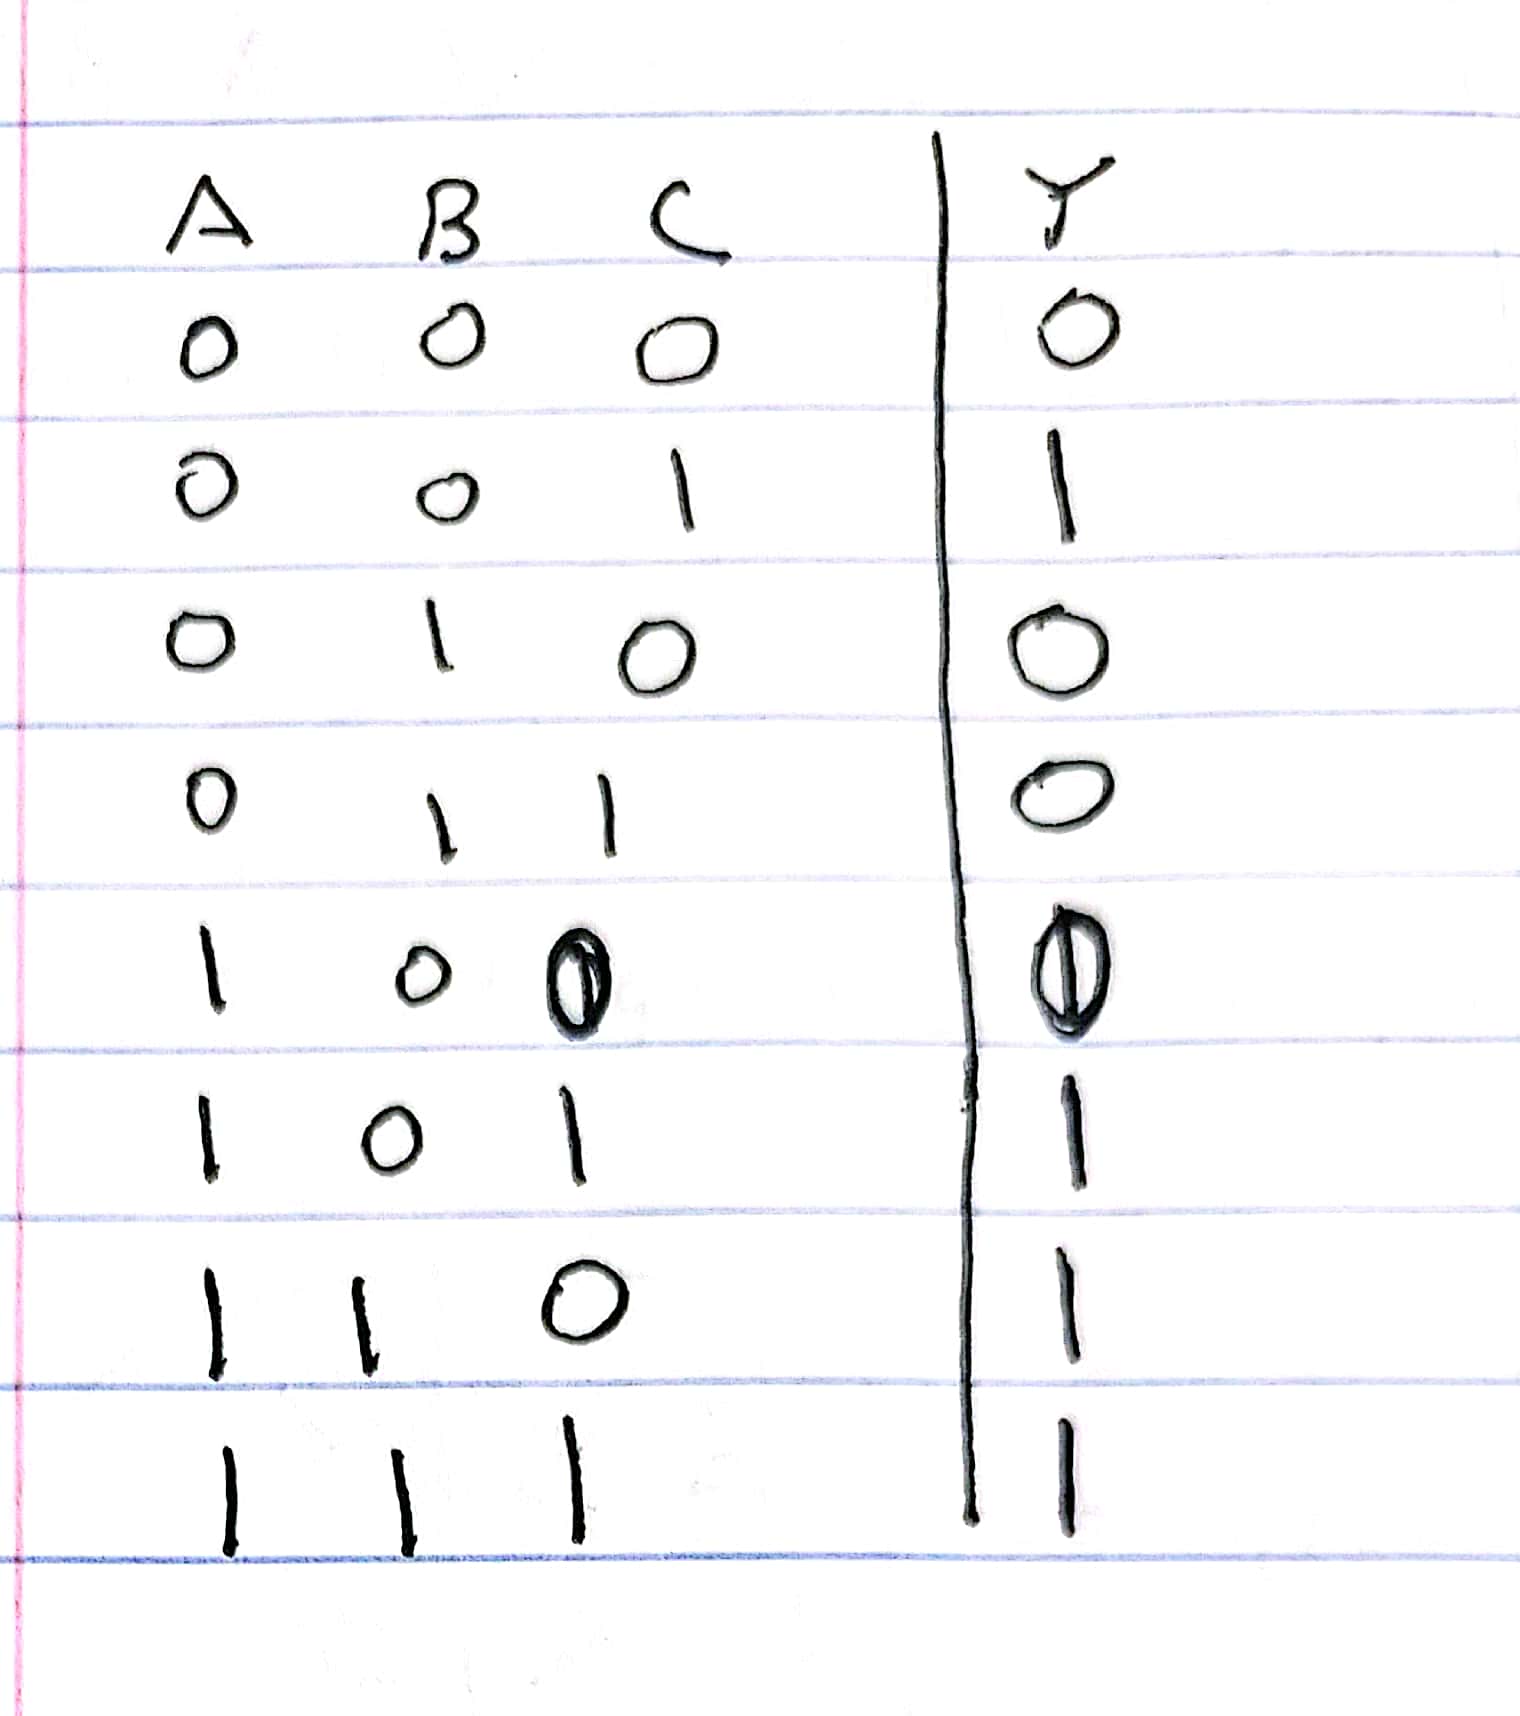 A B C Y
0 0 0 0
0 0 1 1
0 1 0 0
0 1 1 0
1 0 0 0
1 0 1 1
1 1 0 1
1 1 1 1